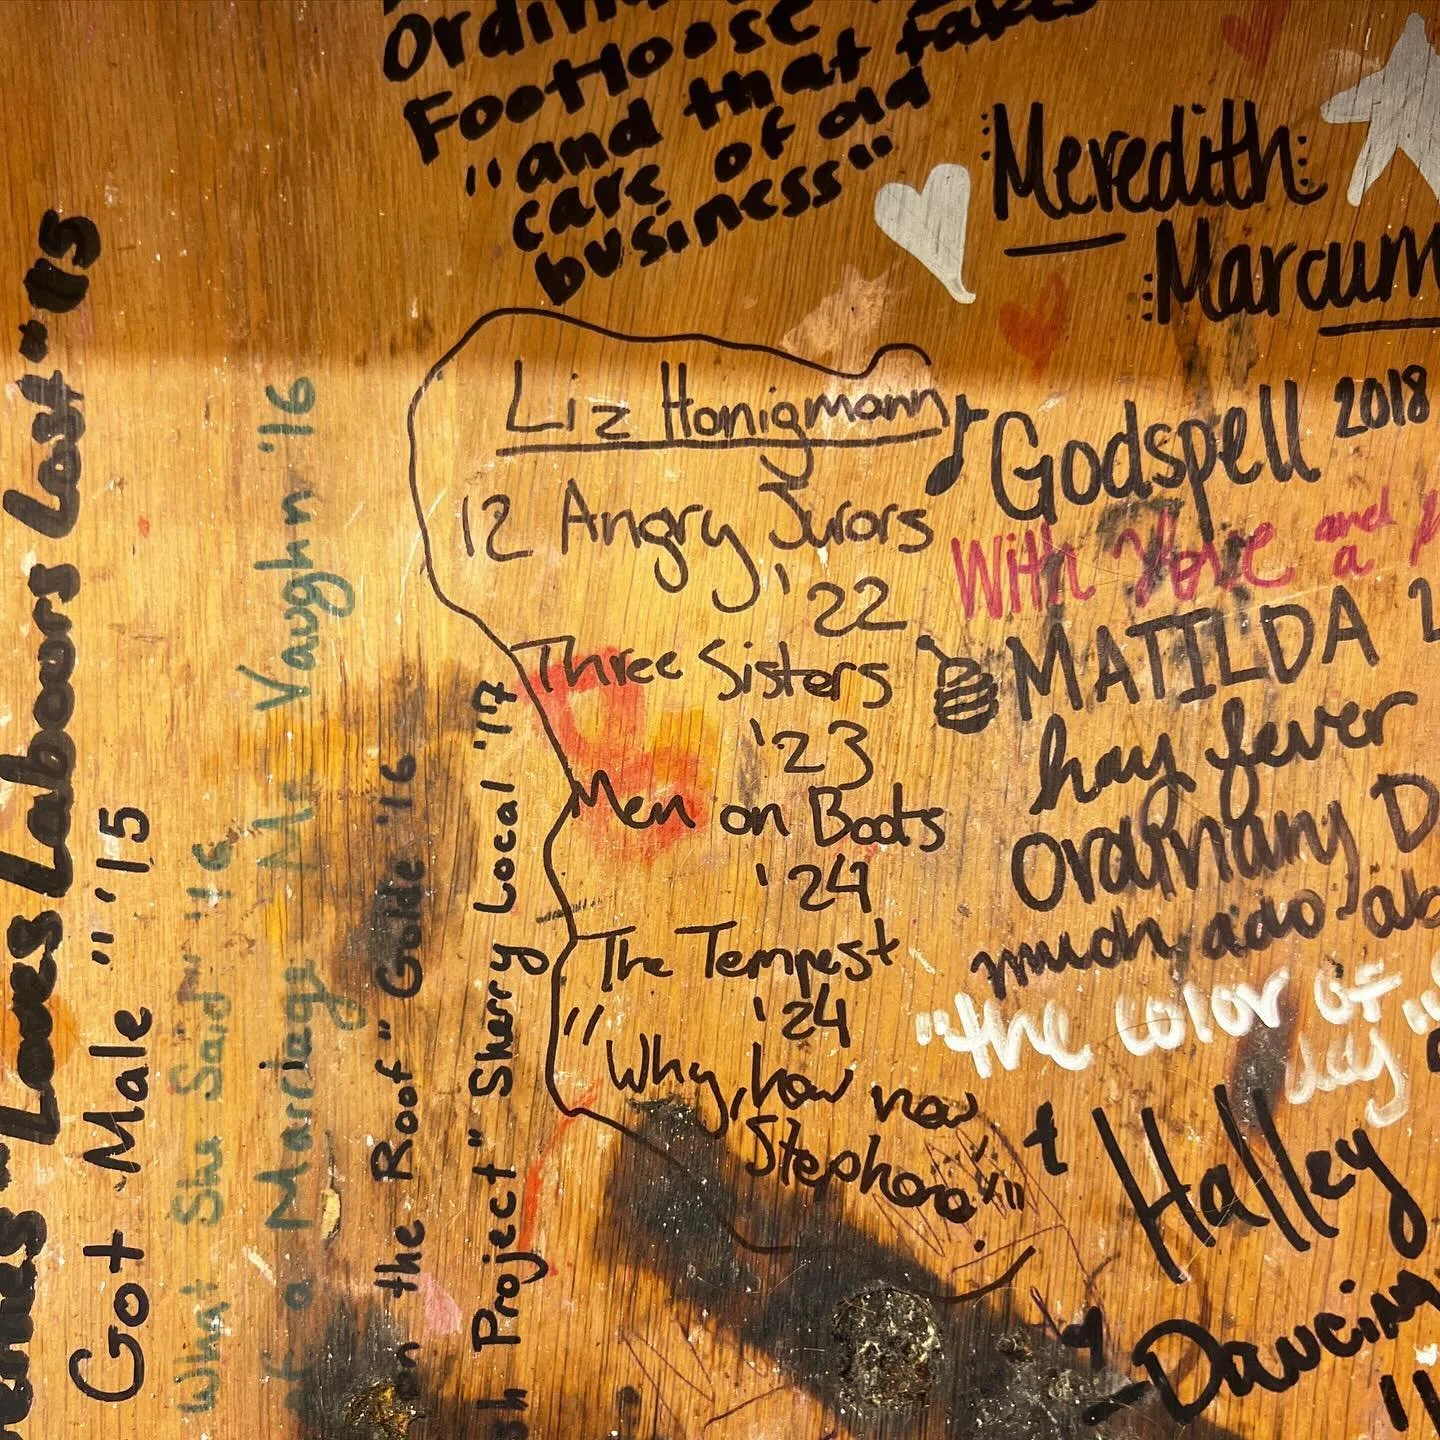 Footloose
"and that takes
care of old
business"
Meredith
Marcum
Liz Honigmann
12 Angry Jurors
'22
Three Sisters
'23
Men on Boats
'24
The Tempest
'24
"Why, how now
Stephano?!"
Godspell 2018
With Love and
a
MATILDA
hay fever
Ordinary D
much ado ab
"the color of
day"
Halley
Dancin
Loves Labours Lost-'15
Got Male" "'15
What She Said" '16
of a Marriage" Ms Vaughn '16
on the Roof" Golde '16
Project" Sherry Local '17